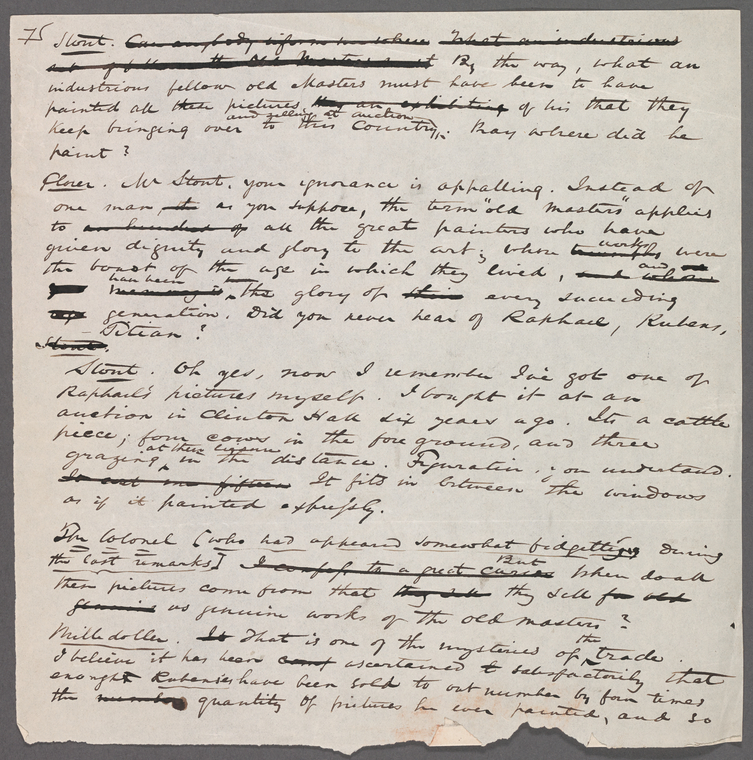 75
Stout. Can anybody inform me where What an industrious
set of fellows the Old Masters By the way, what an
industrious fellow old Masters must have been to have
painted all these pictures they are exhibiting of his that they
and selling at auction
keep bringing over to this Country. Pray where did he
paint?
Glover. Mr Stout, your ignorance is appalling. Instead of
one man, as you suppose, the term "old Masters" applies
to an hundred of all the great painters who have
given dignity and glory to the art; whose triumphs were
works
the boast of the age in which they lived, and whose
and
has been
memory is the glory of their every succeeding
age generation. Did you never hear of Raphael, Rubens,
Titian?
Stout.
Stout. Oh yes, now I remember I've got one of
Raphael's pictures myself. I bought it at an
auction in Clinton Hall six years ago. Its a cattle
piece; four cows in the foreground, and three
at their leisure
grazing in the distance. Figurative, you understand.
It cost me fifteen It fits in between the windows
as if it painted expressly.
The Colonel (who had appeared somewhat fidgetting during
the last remarks) I confess to a great But Where do all
these pictures come from that they sell they sell for old
genuine as genuine works of the old masters?
Milledoller. It That is one of the mysteries of the trade.
I believe it has been ascertained satisfactorily that
enough Rubenses have been sold to out number by four times
the number quantity of pictures he ever painted, and so